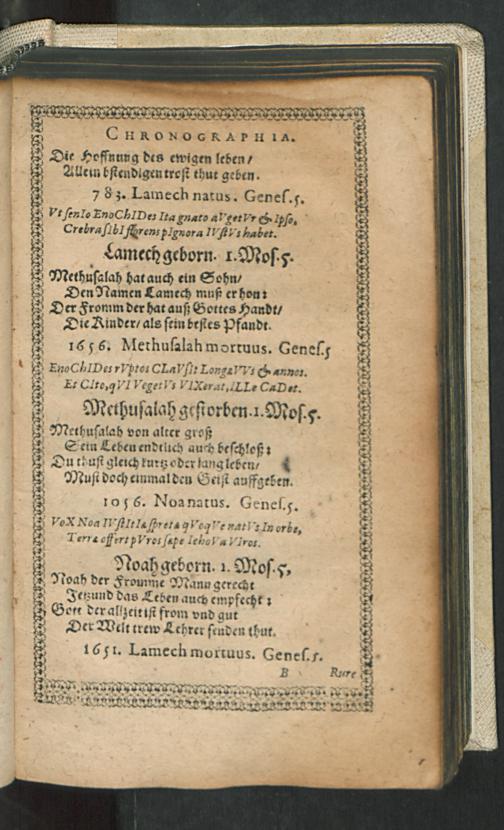 CHRONOGRAPHIA.
Die Hoffnung des ewigen leben/
Allein bstendigen trost thut geben.
783. Lamech natus. Genes.5.
Vt senIo EnoChIDes Ita gnato aVgetVr & Ipso,
Crebra sIbI spIgnora IVstVs habet.
Lamech geborn. 1. Mos. 5.
Methusalah hat auch ein Sohn/
Den Namen Lamech muß er hon:
Der Fromm der hat auß Gottes Handt/
Die Kinder/ als sein bestes Pfandt.
1656. Methusalah mortuus. Genes.5
EnoChIDes rVptos CLaVsIt LongæVVs & annos.
Et CIto, qVI VegetVs VIXerat, ILLe CaDet.
Methusalah gestorben. 1. Mos. 5.
Methusalah von alter groß
Sein Leben endtlich auch beschloß:
Du thust gleich kurtz oder lang leben/
Must doch einmal den Geist auffgeben.
1056. Noa natus. Genes.5.
VoX Noa IVstItIæ spretæ qVoqVe natVs In orbe,
Terræ offert pVros sæpe IehoVa VIros.
Noah geborn. 1. Mos. 5,
Noah der Fromme Mann gerecht
Jetzund das Leben auch empfecht:
Gott der allzeit ist from vnd gut
Der Welt trew Lehrer senden thut.
1651. Lamech mortuus. Genes.5.
B Rure